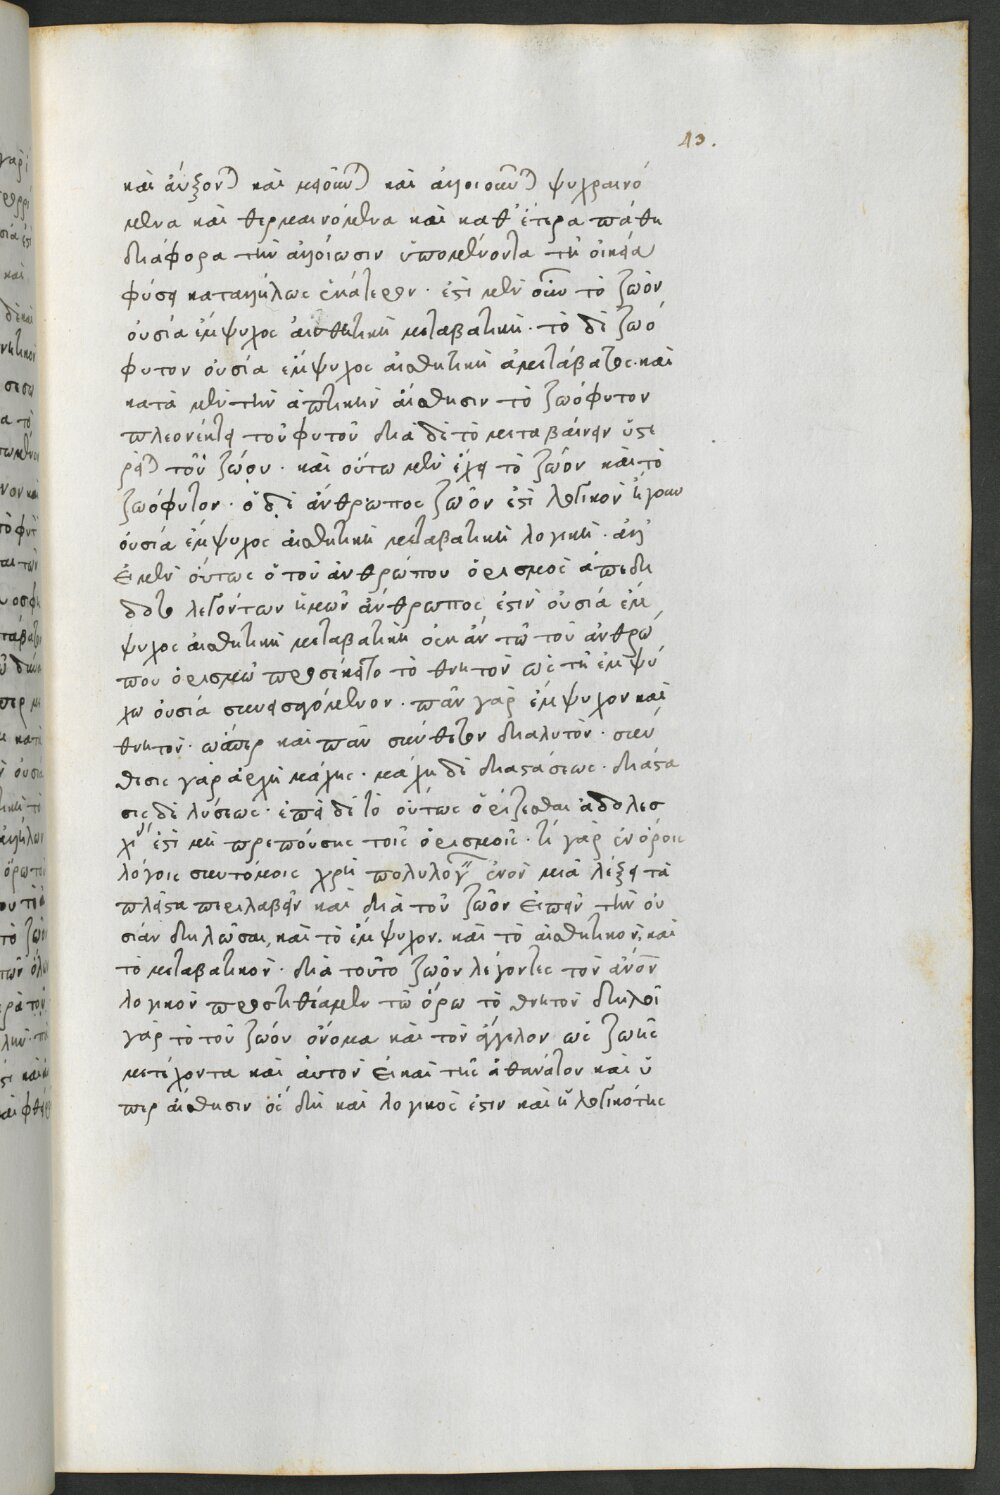 13.
καὶ ἄυξον) καὶ μειοῦν) καὶ ἀλλοιοῦν) ψυχραινό
μενα καὶ θερμαινόμενα καὶ καθ' ἕτερα πάθη
διάφορα τὴν ἀλλοίωσιν ὑπομένοντα τῆ οἰκεία
φύσει καταλλήλως ἑκάτερον. ἐστὶ μὲν οὖν τὸ ζῶον
ουσία ἔμψυχος ἀισθητικὴ μεταβατικὴ. τὸ δὲ ζωό
φυτον ουσία ἔμψυχος ἀισθητικὴ ἀμετάβατος. καὶ
κατὰ μὲν τὴν ἁπτικὴν ἀίσθησιν τὸ ζωόφυτον
πλεονέκτει τοῦ φυτοῦ διὰ δὲ τὸ μεταβαίνειν ὑστε
ρεῖ) τοῦ ζώου. καὶ οὕτω μὲν ἔχει τὸ ζῶον καὶ τὸ
ζωόφυτον. ὁ δὲ ἄνθρωπος ζῶον ἐστὶ λογικὸν ἤγουν
ουσία ἔμψυχος ἀισθητικὴ μεταβατικὴ λογικὴ. ἀλλ'
εἰ μὲν οὕτως ὁ τοῦ ἀνθρώπου ὁρισμὸς ἀπεδί
δοτο λεγόντων ἡμῶν ἄνθρωπος ἐστὶν ουσία ἔμ
ψυχος ἀισθητικὴ μεταβατικὴ οὐκ ἀν τῶ τοῦ ἀνθρώ
που ὁρισμῶ προσέκειτο τὸ θνητὸν ὡς τῆ ἐμψύ
χω ουσία συνεισαγόμενον. πᾶν γὰρ ἔμψυχον καὶ
θνητὸν. ὥσπερ καὶ πᾶν σύνθετον διαλυτὸν. σύν
θεσις γὰρ ἀρχὴ μάχης. μάχη δὲ διαστάσεως. διάστα
σις δὲ λύσεως. ἐπεὶ δὲ τὸ οὕτως ὁρίζεσθαι ἀδολεσ
χί ἐστὶ μὴ πρεπούσης τοῖς ὁρισμοῖς. τί γὰρ ἐν ὅροις
λόγοις συντόμοις χρὴ πολυλογ ἐνὸν μιὰ λέξει τὰ
πλεῖστα περιλαβεῖν καὶ διὰ τοῦ ζῶον εἰπεῖν τὴν ου
σίαν δηλῶσαι, καὶ τὸ ἔμψυχον. καὶ τὸ ἀισθητικὸν, καὶ
τὸ μεταβατικὸν. διὰ τοῦτο ζῶον λέγοντες τὸν ἀνον
λογικὸν προστιθέαμεν τῶ ὅρω τὸ θνητὸν δηλοῖ
γὰρ τὸ τοῦ ζῶον ὄνομα καὶ τὸν ἄγγελον ὡς ζωῆς
μετέχοντα καὶ ἀυτὸν εἰ καὶ τῆς ἀθανάτου καὶ ὑ
περ ἀίσθησιν ὃς δὴ καὶ λογικὸς ἐστὶν καὶ ἡ λογικότης